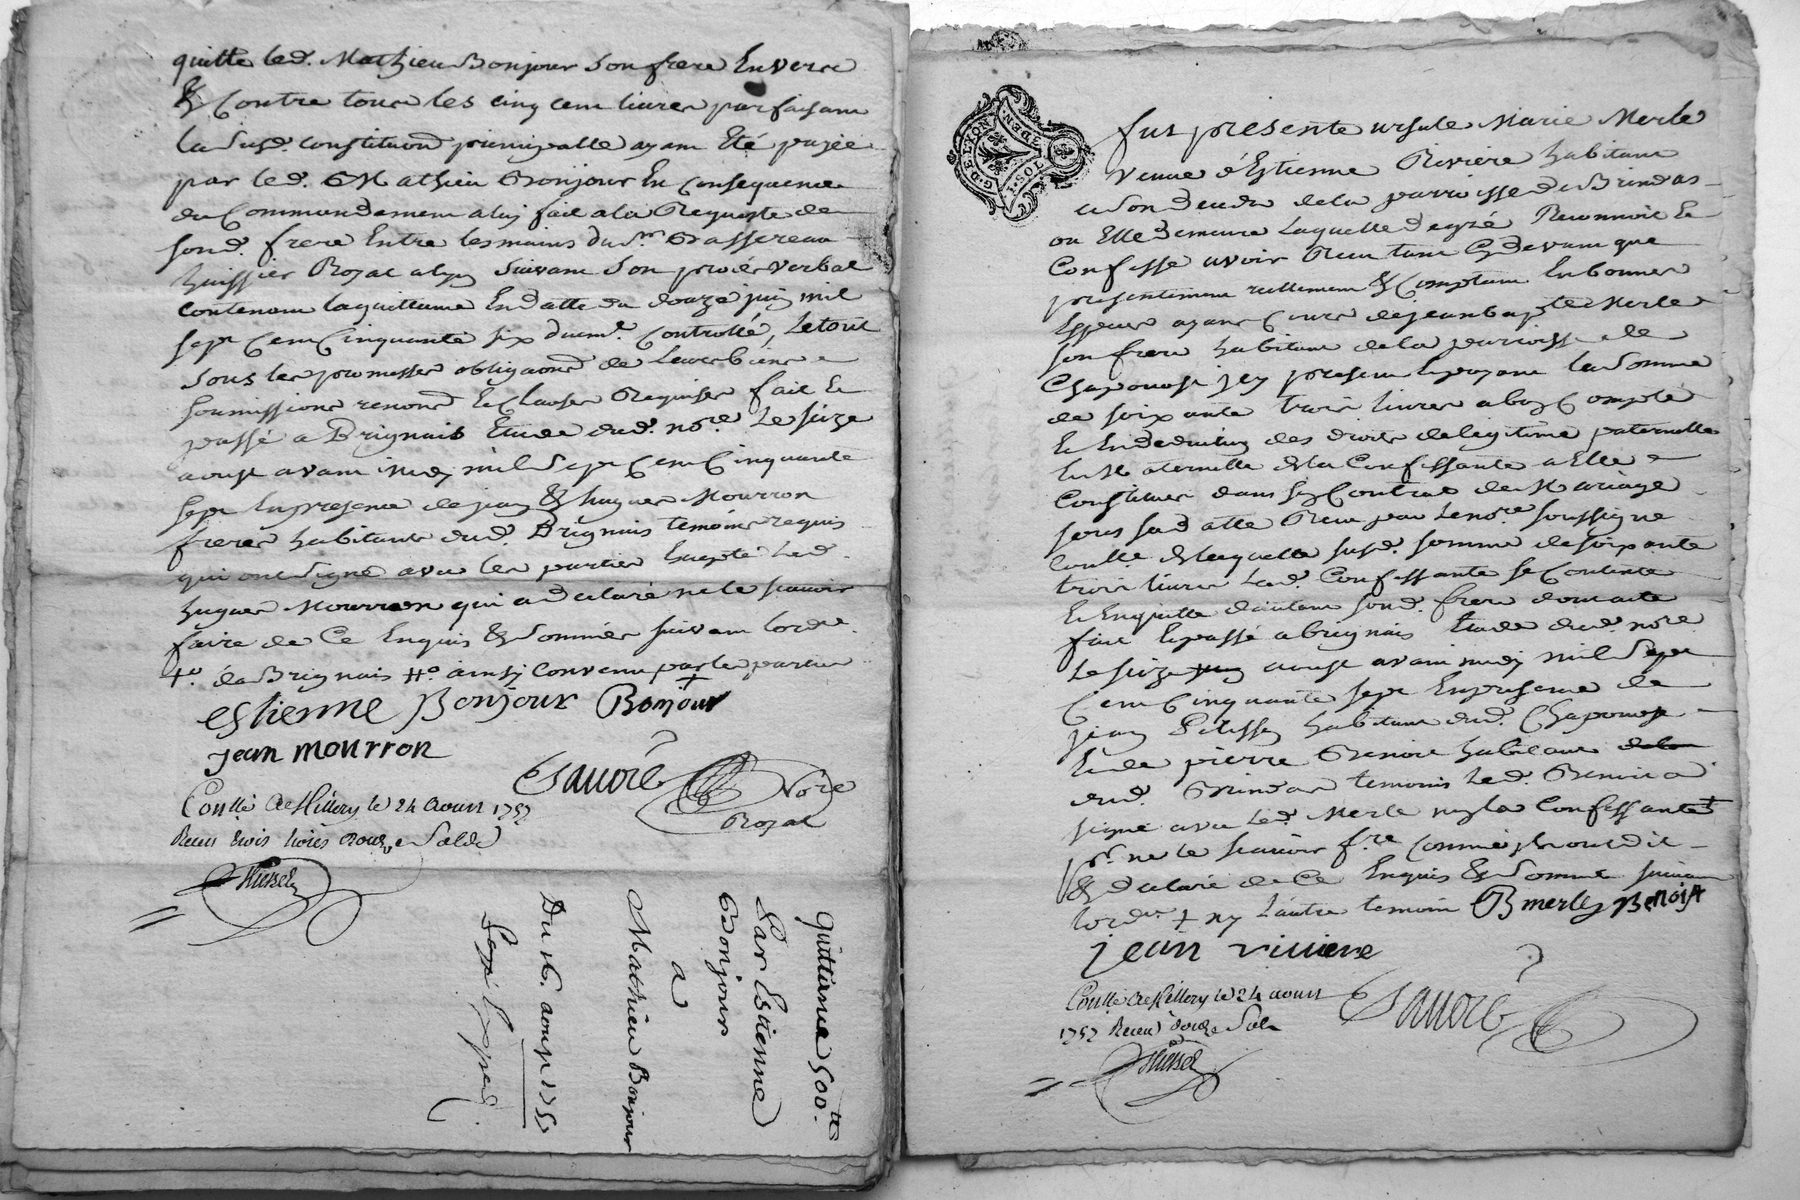 quitte led. Mathieu Bonjour son frere Envers
& Contre tous les cinq cent livres parfaisant
la susd. constituon principalle ayant Eté payée
par led. Mathieu Bonjour En consequence
du Commandement a luy fait a la Requeste de
sond. frere Entre les mains du Sr.
huissier Royal a Lyon suivant son procés verbal
contenant la quittance En datte du douze juin mil
sept Cent Cinquante six duemt. Controllé, Le tout
sous les promesses obligaons de Leurs biens
soumissions renonons & Clauses Requises fait &
passé a Brignais Etude dud. nore. Le seize
aoust avant midy mil sept Cent Cinquante
sept En presence de jean & hugues Mourron
freres habitants dud. Brignais temoins requis
qui ont signé avec les parties Excepté led.
hugues Mourron qui a declaré ne le scavoir
faire de Ce Enquis & sommés suivant lordce.
de Brignais ainsy convenu par les parties
estienne Bonjour Bonjour
jean mourron
Notre
Royal
Conllé a St Millery le 24 aoust 1757
Receu trois livres douze sols
quittance 500 tt
Par Estienne
Bonjour
a
Mathieu Bonjour
Du 16. aoust 1757
Fut presente ursule Marie Merle
veuve d'Estienne Riviere habitant
a son deceds de la parroisse de Brindas
ou Elle demeure Laquelle de gré Reconnoit &
Confesse avoir Receu tant Cydevant que
presentement reellement & Comptant En bonnes
Especes ayant Cours de jean bapte Merle
son frere habitant de la parroisse de
Chaponost jcy present & payant la somme
de soixante trois livres a bon Compte
& En deduction des droits de legitime paternelle
& Maternelle de la Confessante a Elle
Constitués dans son Contrat de Mariage
sous sa datte Receu par le nore. soussigné
Conllé. de laquelle susd. somme de soixante
trois livres lad. Confessante se Contente
& En quitte dautant sond. frere dont acte
fait & passé a brignais Etude dud. nore
Le seize aoust avant midy mil sept
Cent Cinquante sept En presence de
jean habitant dud. Chaponost
& de pierre Benoist habitant
dud. Brindas temoins Led. Benoist a
signé avec led. Merle non la Confessante
pr. ne le scavoir fre. Comme jls ont dit
& declaré de Ce Enquis & sommé suivant
lordce. + ny L'autre temoin B merle Benoist
jean riviere
Conllé a St Millery le 24 aoust
1757 Receu douze sols
G. D. LYON
1. SOL